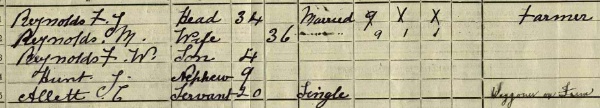 Reynolds F. J. Head 34 Married 9 X X X Farmer
2 Reynolds. M. Wife 36 9 1 1
3 Reynolds F. W. Son 4
Hunt J. Nephew 9
5 Allett Servant 20 Single on Farm